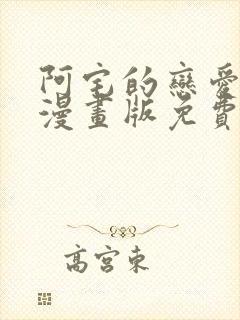 阿宅的戀愛
漫畫版免費
高宮東